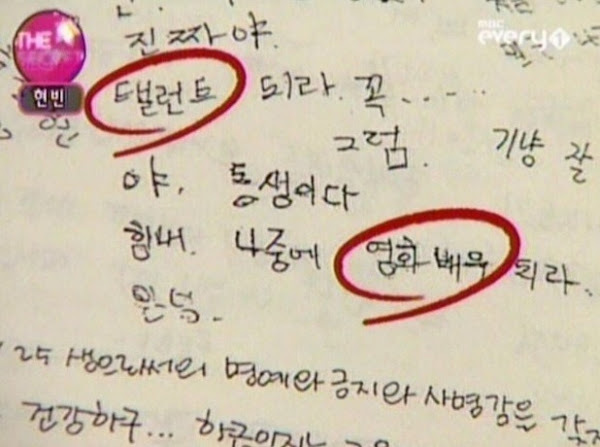 THE
mbc every1
현빈
진짜야.
탤런트 되라. 꼭.....
그럼. 기냥 잘
야. 동생이다
힘내. 나중에 영화배우 되라.
25 생으로서의 명예와 긍지와 사명감을
건강하구...